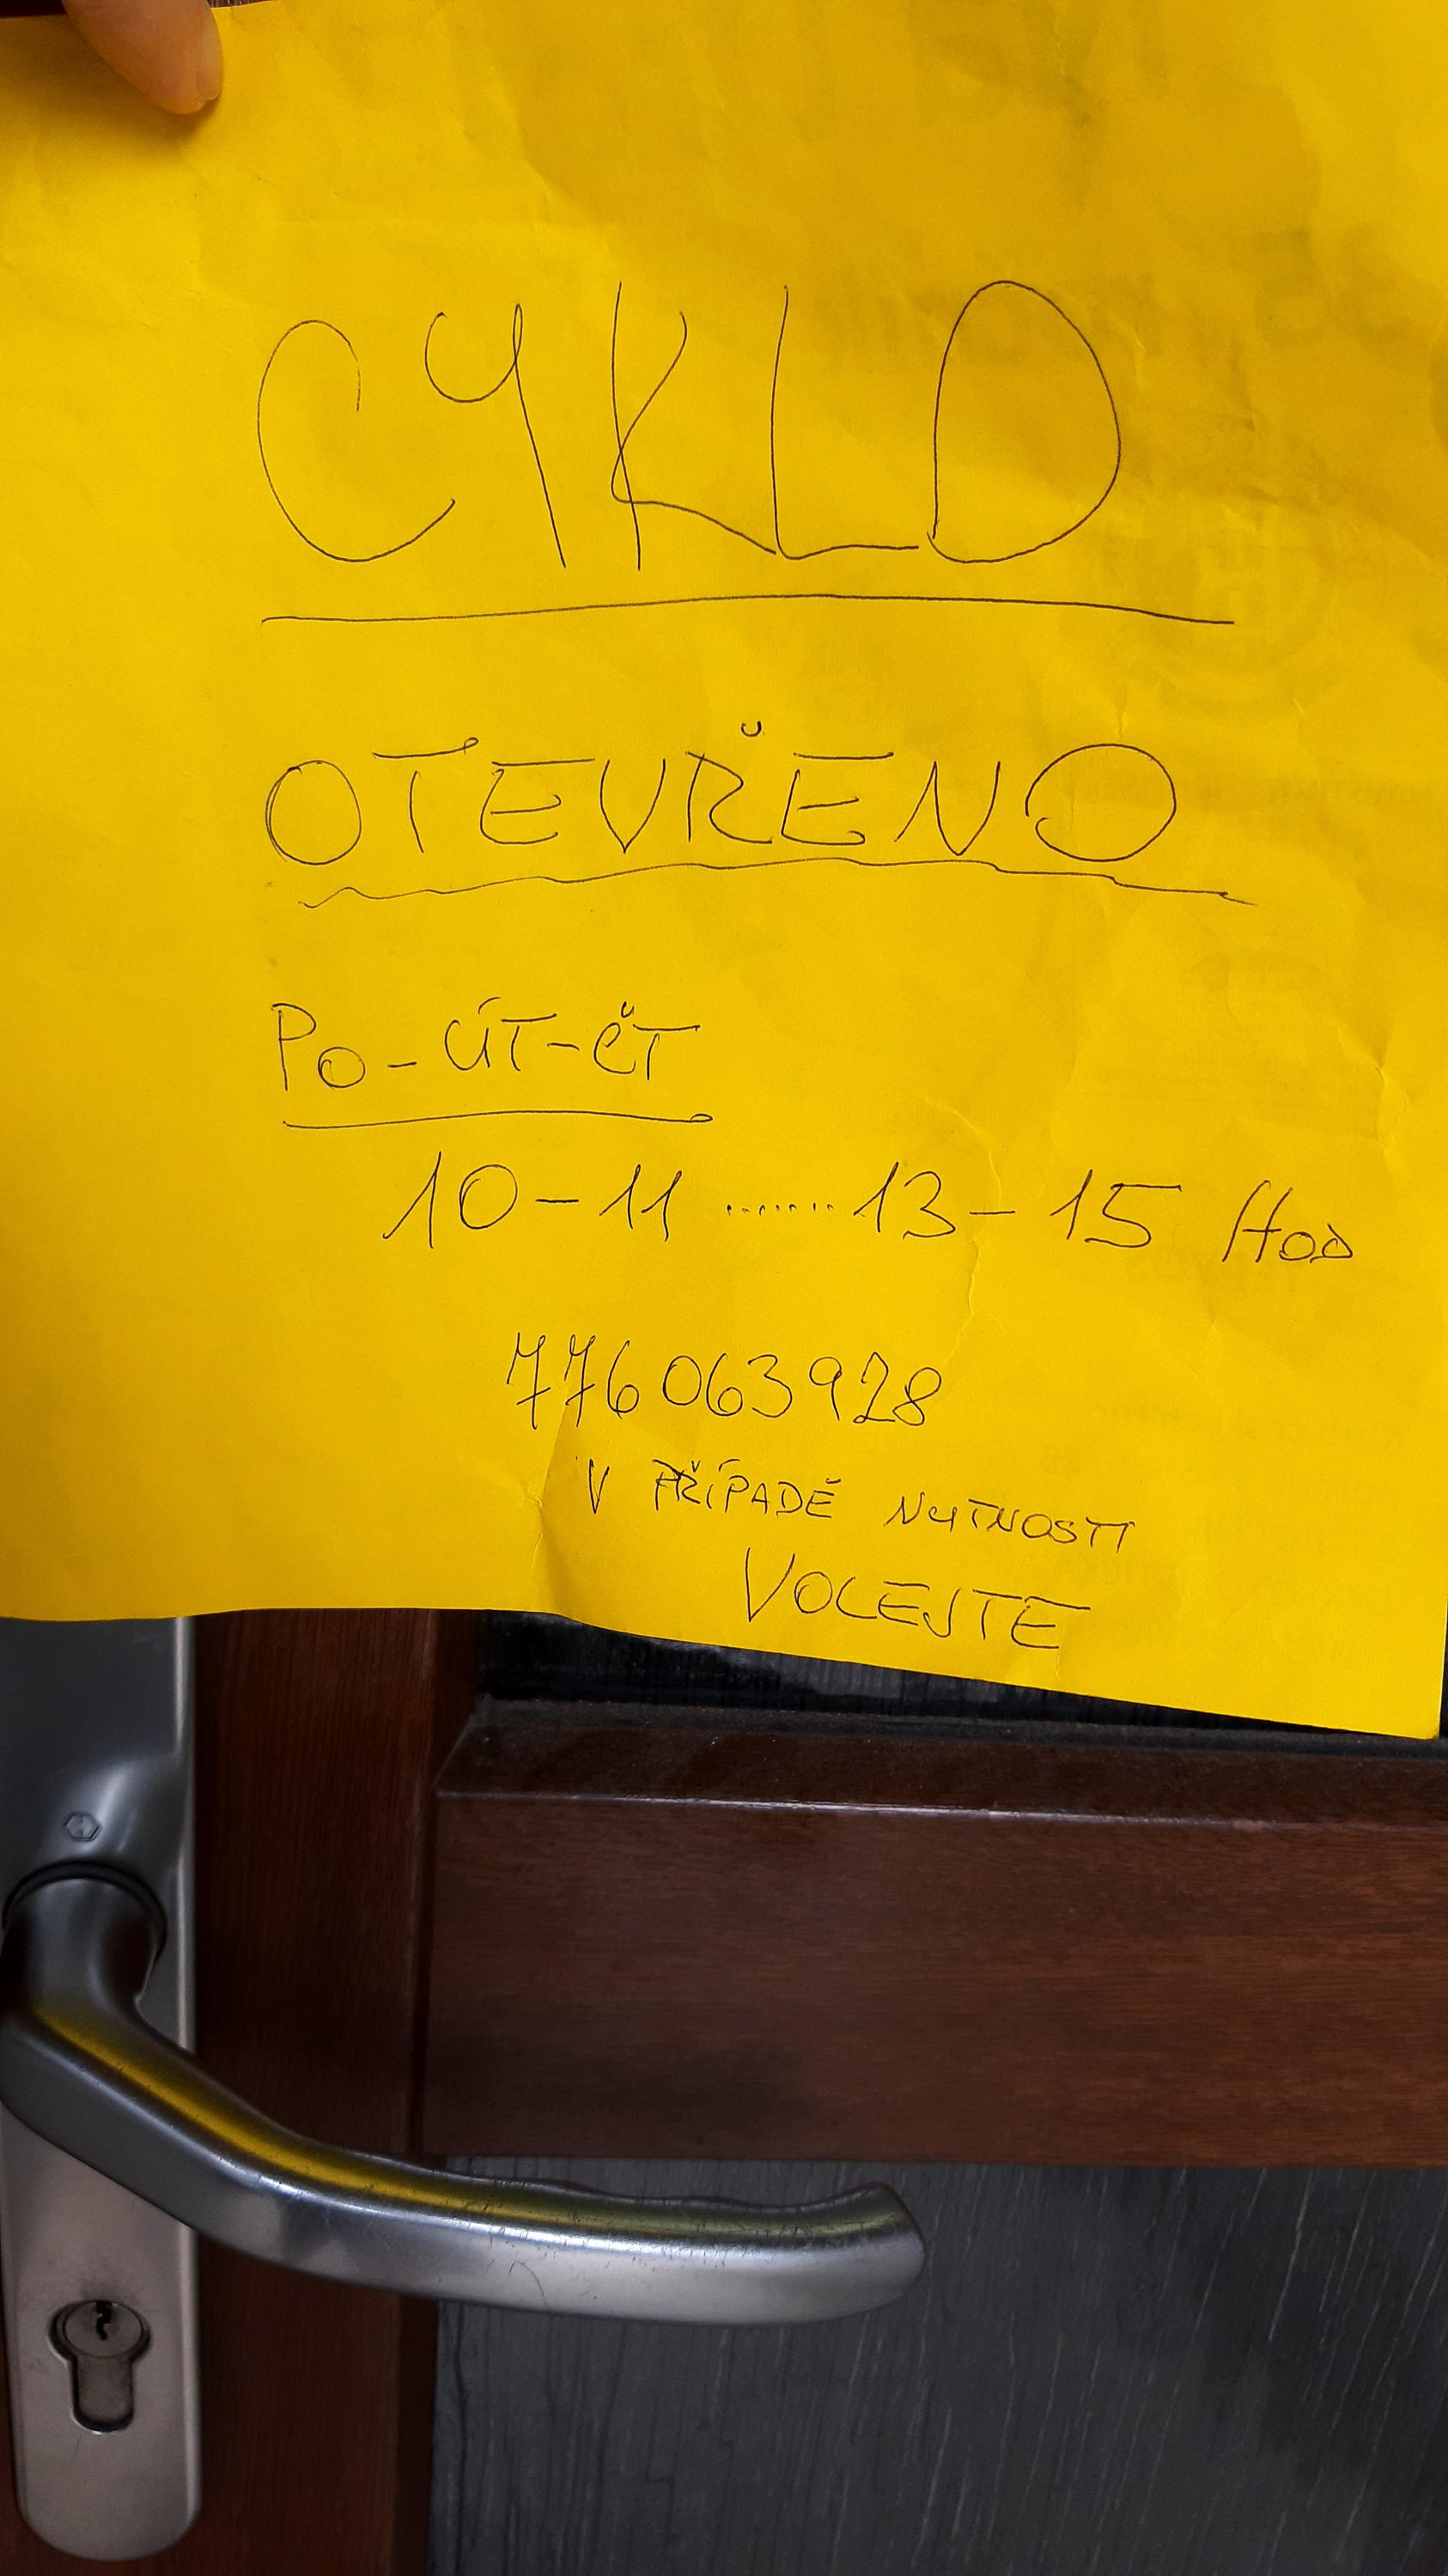 CYKLO
OTEVŘENO
PO-ÚT-ČT
10-11 ....... 13-15 HOD
776 063 928
V PŘÍPADĚ NUTNOSTI
VOLEJTE